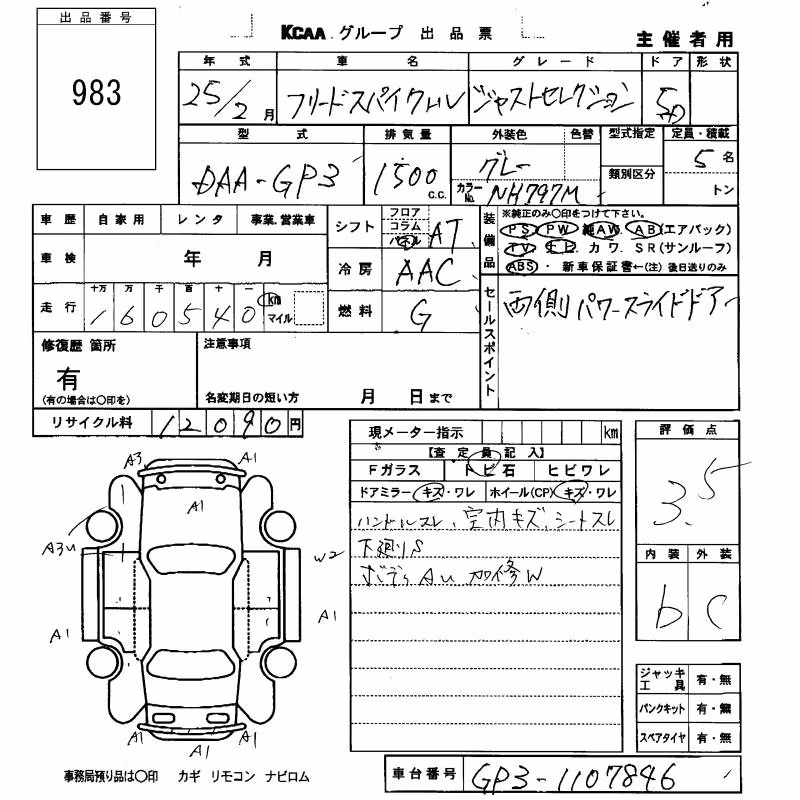 出品番号
983
KCAA グループ 出品票
主催者用
年式 車名 グレード ドア 形状
25/2月 フリードスパイクHV ジャストセレクション 5D
型式 排気量 外装色 色替 型式指定 定員・積載
DAA-GP3 1500 C.C. グレー カラーNo. NH797M 類別区分 5名
トン
車歴 自家用 レンタ 事業.営業車
シフト フロア コラム パネル AT
装備品 ※純正のみ〇印をつけて下さい。
PS PW 純AW. AB(エアバック)
TV ナビ カワ. SR(サンルーフ)
ABS・新車保証書←(注)後日送りのみ
車検 年 月
冷房 AAC
走行 十万 万 千 百 十 一
160540 km マイル
燃料 G
セールスポイント 両側パワースライドドアー
修復歴 箇所
有
(有の場合は〇印を)
注意事項
名変期日の短い方 月 日まで
リサイクル料 12090円
現メーター指示 km
【査定員記入】
Fガラス トビ石 ヒビワレ
ドアミラー キズ・ワレ ホイール(CP) キズ・ワレ
ハンドルスレ、室内キズ、シートスレ
下廻りS
AU 加修W
評価点
3.5
内装 外装
b C
ジャッキ工具 有・無
パンクキット 有・無
スペアタイヤ 有・無
A3 A1
A1
A3U W2
A1 A1
A1 A1 A1
事務局預り品は〇印 カギ リモコン ナビロム
車台番号 GP3-1107846